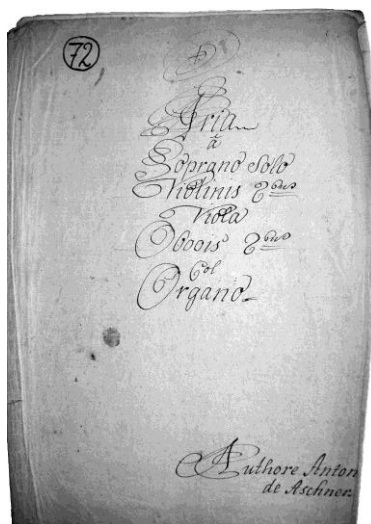 72
Aria
à
Soprano Solo
Violinis 2bus
Viola
Obois 2bus
Col
Organo
Authore Anton
de Aschner